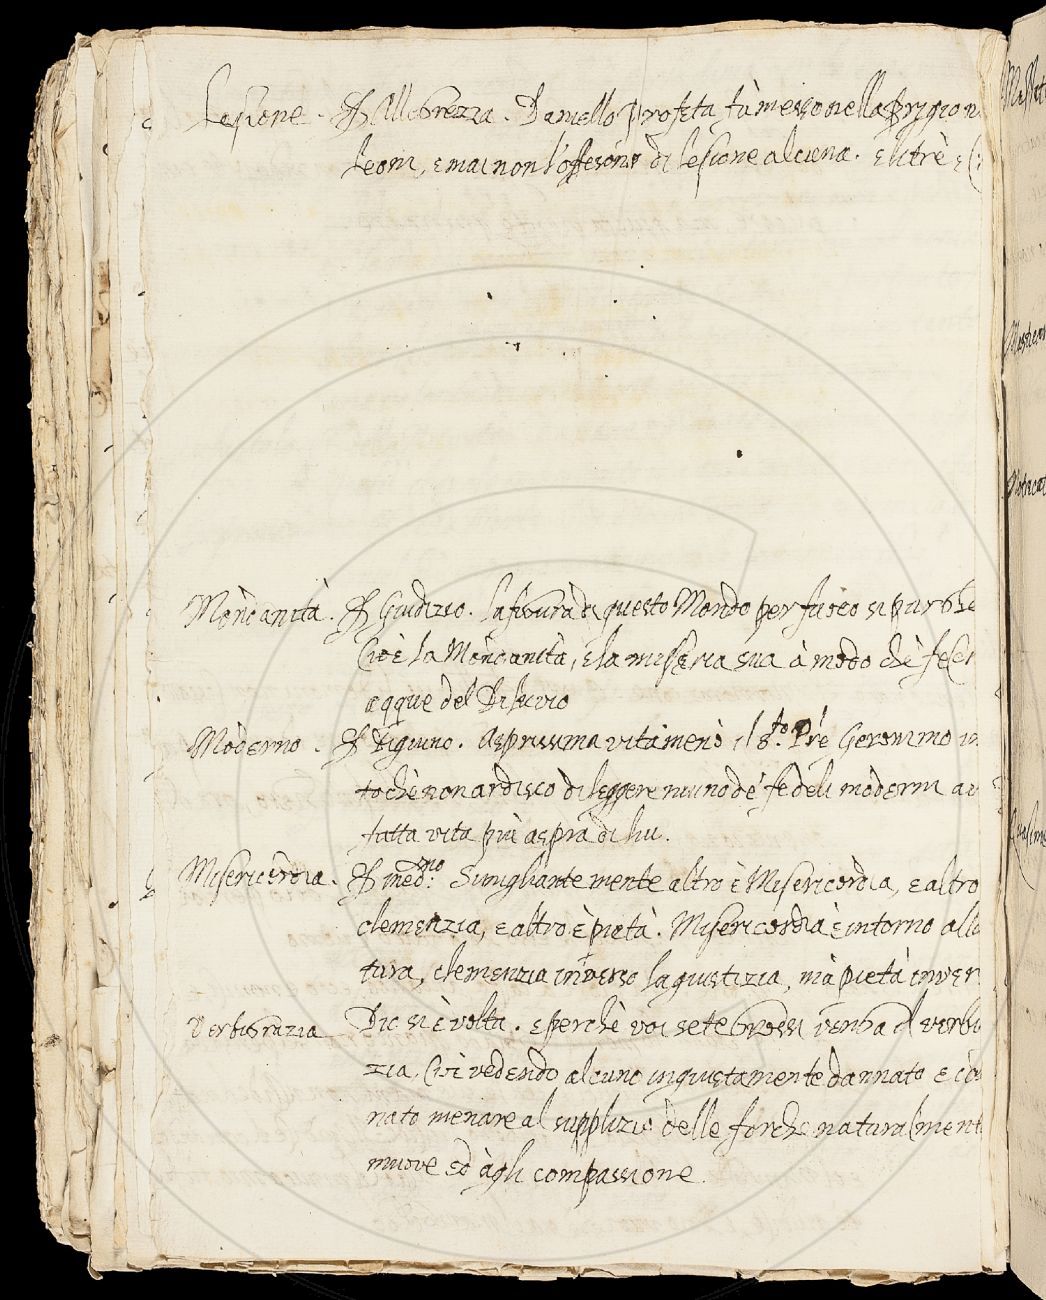 Lesione. Allegrezza. Daniello profeta fù messo nella prigion
leoni, e mai non l'offesono di lesione alcuna. e li trè
Mondanità. Giudizio. la figura di questo Mondo per fuoco si purghe
Cioè la Mondanità, e la miseria sua à modo chè fecer
acque del Diluvio
Moderno. Digiuno. Asprissima vita menò il Sto. Pre Geronimo in
to chè non ardisco di leggere niuno de' fedeli moderni
fatta vita più aspra di lui.
Misericordia. medmo. Simigliantemente altro è Misericordia, e altro
clemenzia, e altro è pietà. Misericordia è intorno alla
tura, clemenzia in verso la giustizia, mà pietà inver
Verbigrazia Dio si è volta. e perchè voi sete grossi venga il verbi
zia. Cioè vedendo alcuno ingiustamente dannato e
nato menare al supplizio delle forche naturalment
muove ed àgli compassione.